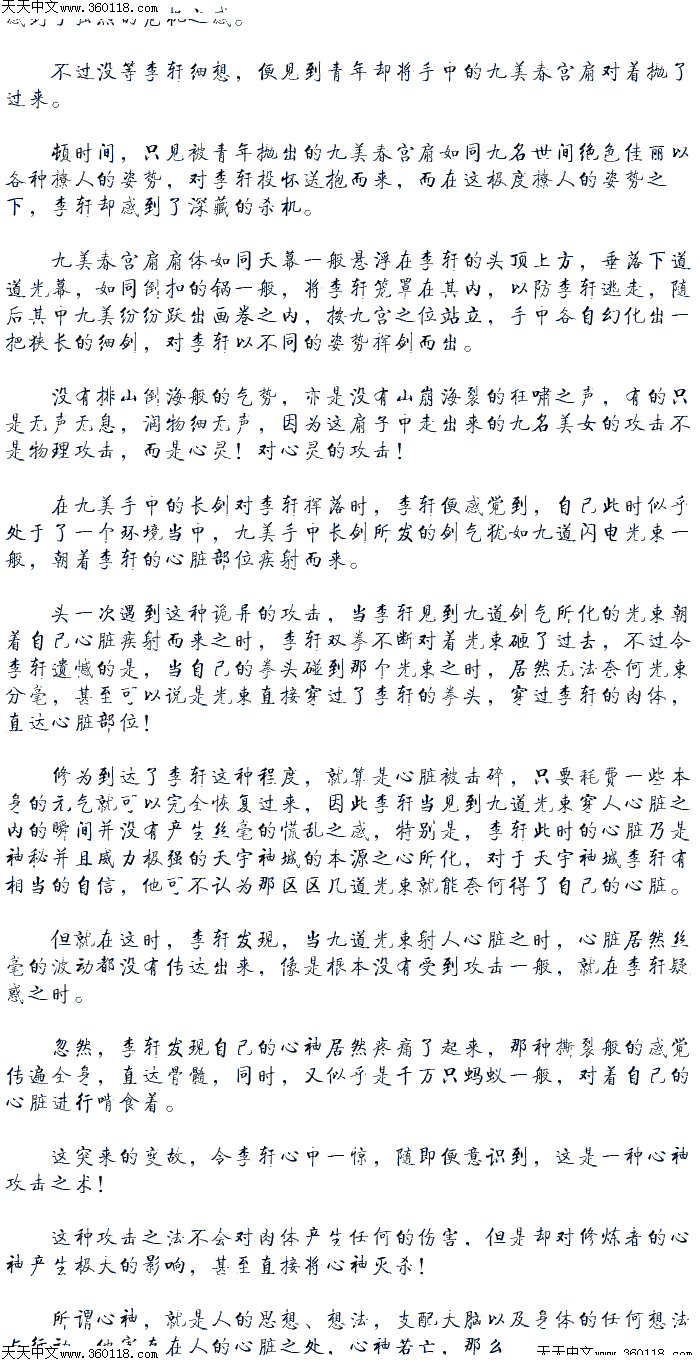 天天中文www.360118.com 天天中文www.360118.com
感到了强烈的危机之感。
不过没等李轩细想，便见到青年却将手中的九美春宫扇对着抛了
过来。
顿时间，只见被青年抛出的九美春宫扇如同九名世间绝色佳丽以
各种撩人的姿势，对李轩投怀送抱而来，而在这极度撩人的姿势之
下，李轩却感到了深藏的杀机。
九美春宫扇扇体如同天幕一般悬浮在李轩的头顶上方，垂落下道
道光幕，如同倒扣的锅一般，将李轩笼罩在其内，以防李轩逃走，随
后其中九美纷纷跃出画卷之内，按九宫之位站立，手中各自幻化出一
把狭长的细剑，对李轩以不同的姿势挥剑而出。
没有排山倒海般的气势，亦是没有山崩海裂的狂啸之声，有的只
是无声无息，润物细无声，因为这扇子中走出来的九名美女的攻击不
是物理攻击，而是心灵！对心灵的攻击！
在九美手中的长剑对李轩挥落时，李轩便感觉到，自己此时似乎
处于了一个环境当中，九美手中长剑所发的剑气犹如九道闪电光束一
般，朝着李轩的心脏部位疾射而来。
头一次遇到这种诡异的攻击，当李轩见到九道剑气所化的光束朝
着自己心脏疾射而来之时，李轩双拳不断对着光束砸了过去，不过令
李轩遗憾的是，当自己的拳头碰到那个光束之时，居然无法奈何光束
分毫，甚至可以说是光束直接穿过了李轩的拳头，穿过李轩的肉体，
直达心脏部位！
修为到达了李轩这种程度，就算是心脏被击碎，只要耗费一些本
身的元气就可以完全恢复过来，因此李轩当见到九道光束穿人心脏之
内的瞬间并没有产生丝毫的慌乱之感，特别是，李轩此时的心脏乃是
神秘并且威力极强的天宇神城的本源之心所化，对于天宇神城李轩有
相当的自信，他可不认为那区区几道光束就能奈何得了自己的心脏。
但就在这时，李轩发现，当九道光束射人心脏之时，心脏居然丝
毫的波动都没有传达出来，像是根本没有受到攻击一般，就在李轩疑
惑之时。
忽然，李轩发现自己的心神居然疼痛了起来，那种撕裂般的感觉
传遍全身，直达骨髓，同时，又似乎是千万只蚂蚁一般，对着自己的
心脏进行啃食着。
这突来的变故，令李轩心中一惊，随即便意识到，这是一种心神
攻击之术！
这种攻击之法不会对肉体产生任何的伤害，但是却对修炼者的心
神产生极大的影响，甚至直接将心神灭杀！
所谓心神，就是人的思想、想法，支配大脑以及身体的任何想法
在人的心脏之处，心神若亡，那么
天天中文www.360118.com 天天中文www.360118.com